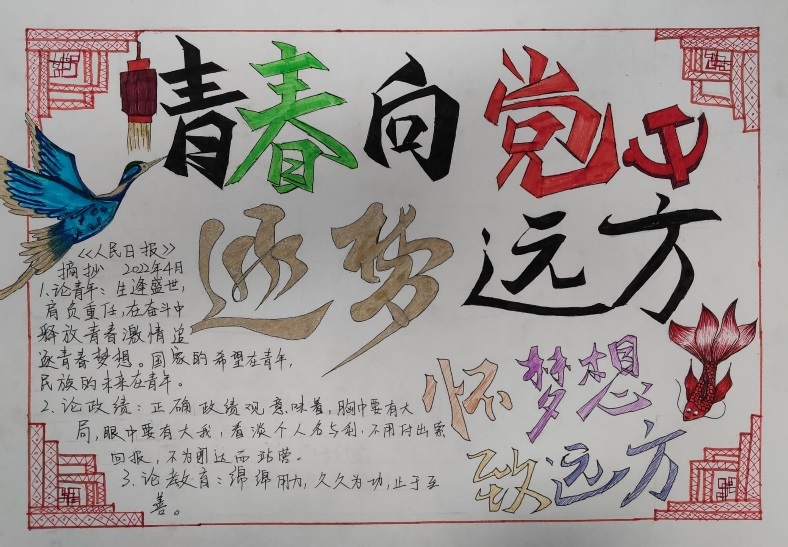 青春向党
逐梦远方
《人民日报》
摘抄 2022年4月
1.论青年：生逢盛世，
肩负重任，在奋斗中
释放青春激情追
逐青春梦想。国家的希望在青年，
民族的未来在青年。
2.论政绩：正确政绩观意味着，胸中要有大
局，眼中要有大我，看淡个人名与利。不用付出索
回报，不为闻达而站营。
3.论教育：绵绵用力，久久为功，止于至
善。
怀梦想
致远方